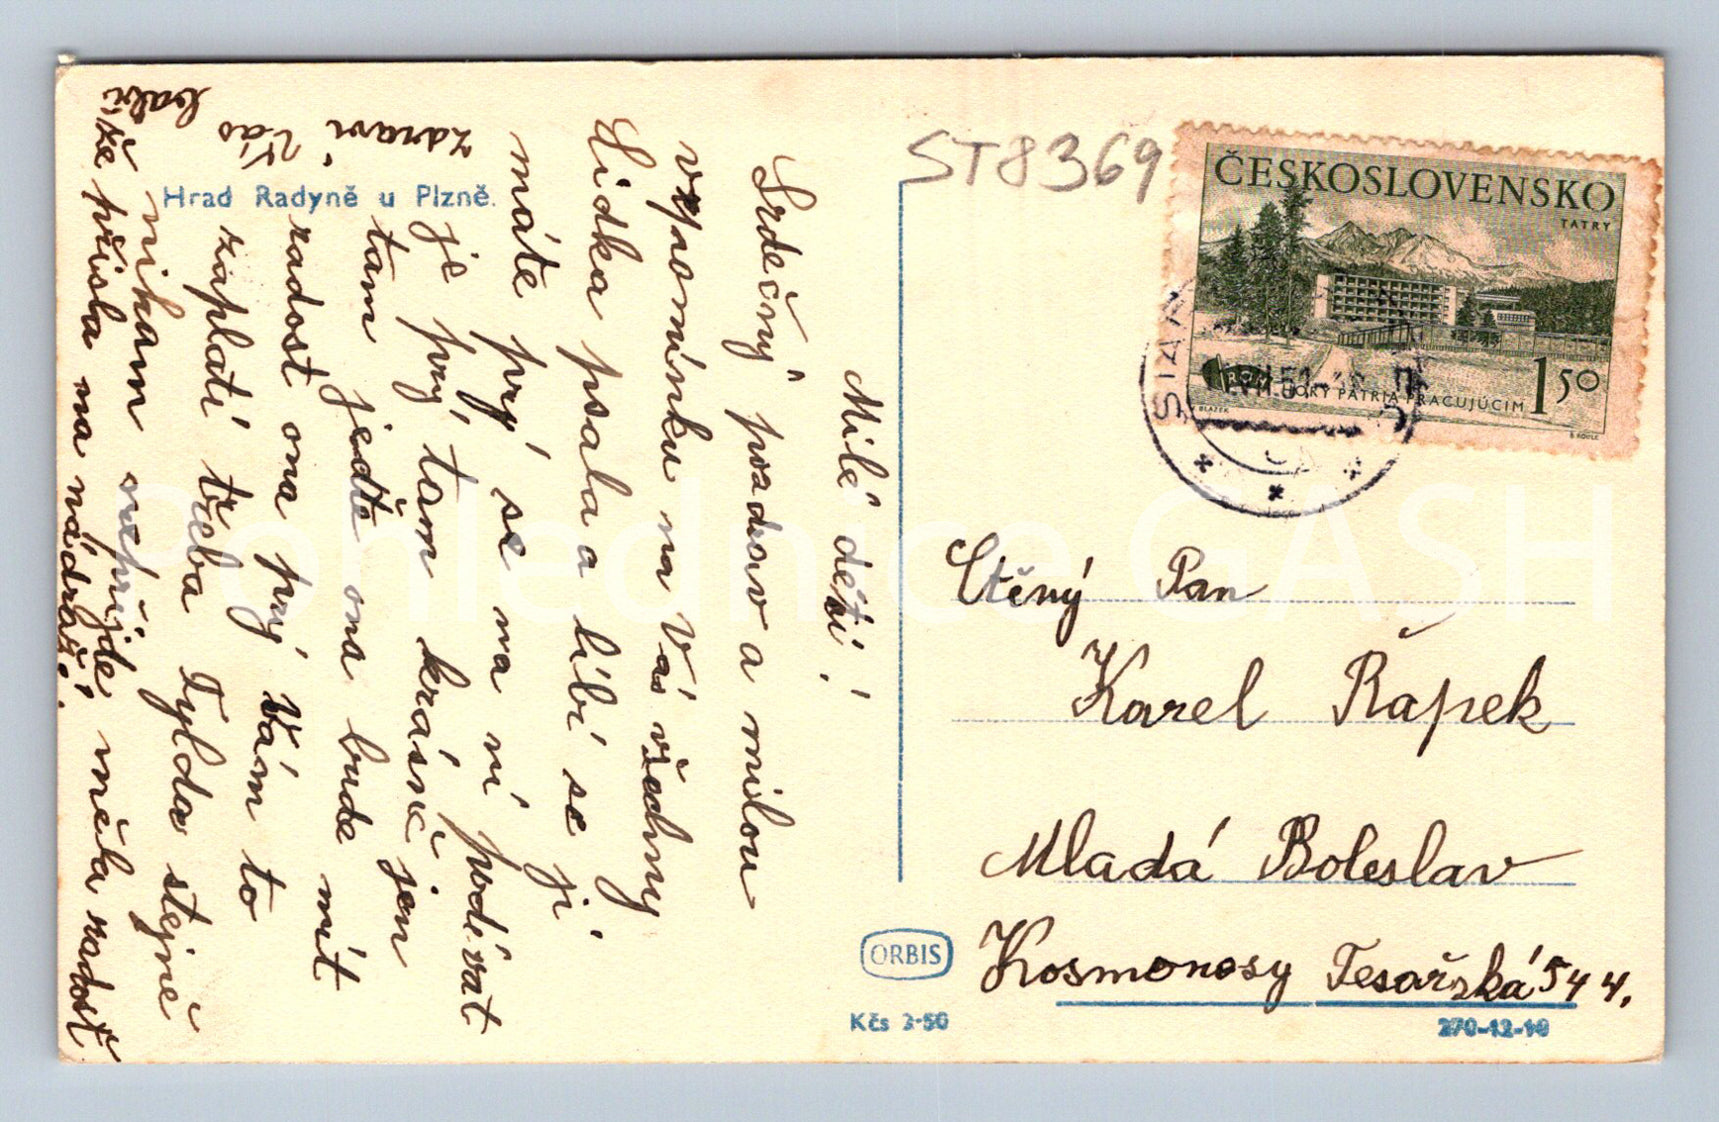 Hrad Radyně u Plzně.
Milé děti!
Srdečný pozdrav a milou
vzpomínku na Vás všechny
Lidka psala a líbí se jí
máte prý se na ní podívat
je prý tam krásně jen
tam jeďte ona bude mít
radost ona prý Vám to
zaplatí třeba Tylda stejně
nikam nepřijde měla radost
že přišla na nádraží.
zdraví Vás
ST8369
ČESKOSLOVENSKO
TATRY
ROH HORY PATRIA PRACUJÚCIM
1 50
Ctěný Pan
Karel Řápek
Mladá Boleslav
Kosmonosy Tesařská 544.
ORBIS
Kčs 2-50
270-12-10
Pohlednice GASH